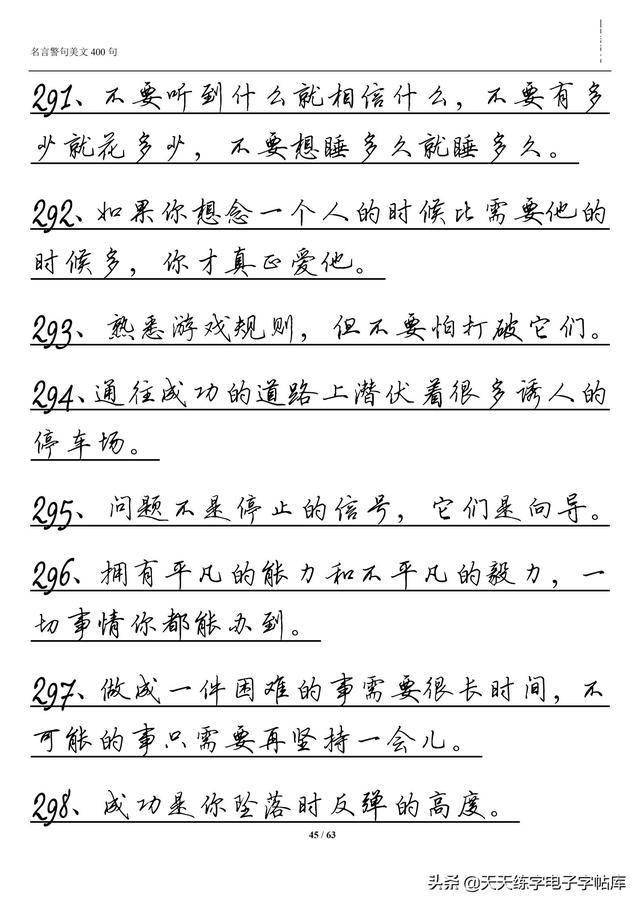 名言警句美文 400 句
291、不要听到什么就相信什么，不要有多
少就花多少，不要想睡多久就睡多久。
292、如果你想念一个人的时候比需要他的
时候多，你才真正爱他。
293、熟悉游戏规则，但不要怕打破它们。
294、通往成功的道路上潜伏着很多诱人的
停车场。
295、问题不是停止的信号，它们是向导。
296、拥有平凡的能力和不平凡的毅力，一
切事情你都能办到。
297、做成一件困难的事需要很长时间，不
可能的事只需要再坚持一会儿。
298、成功是你坠落时反弹的高度。
45 / 63
头条 @天天练字电子字帖库